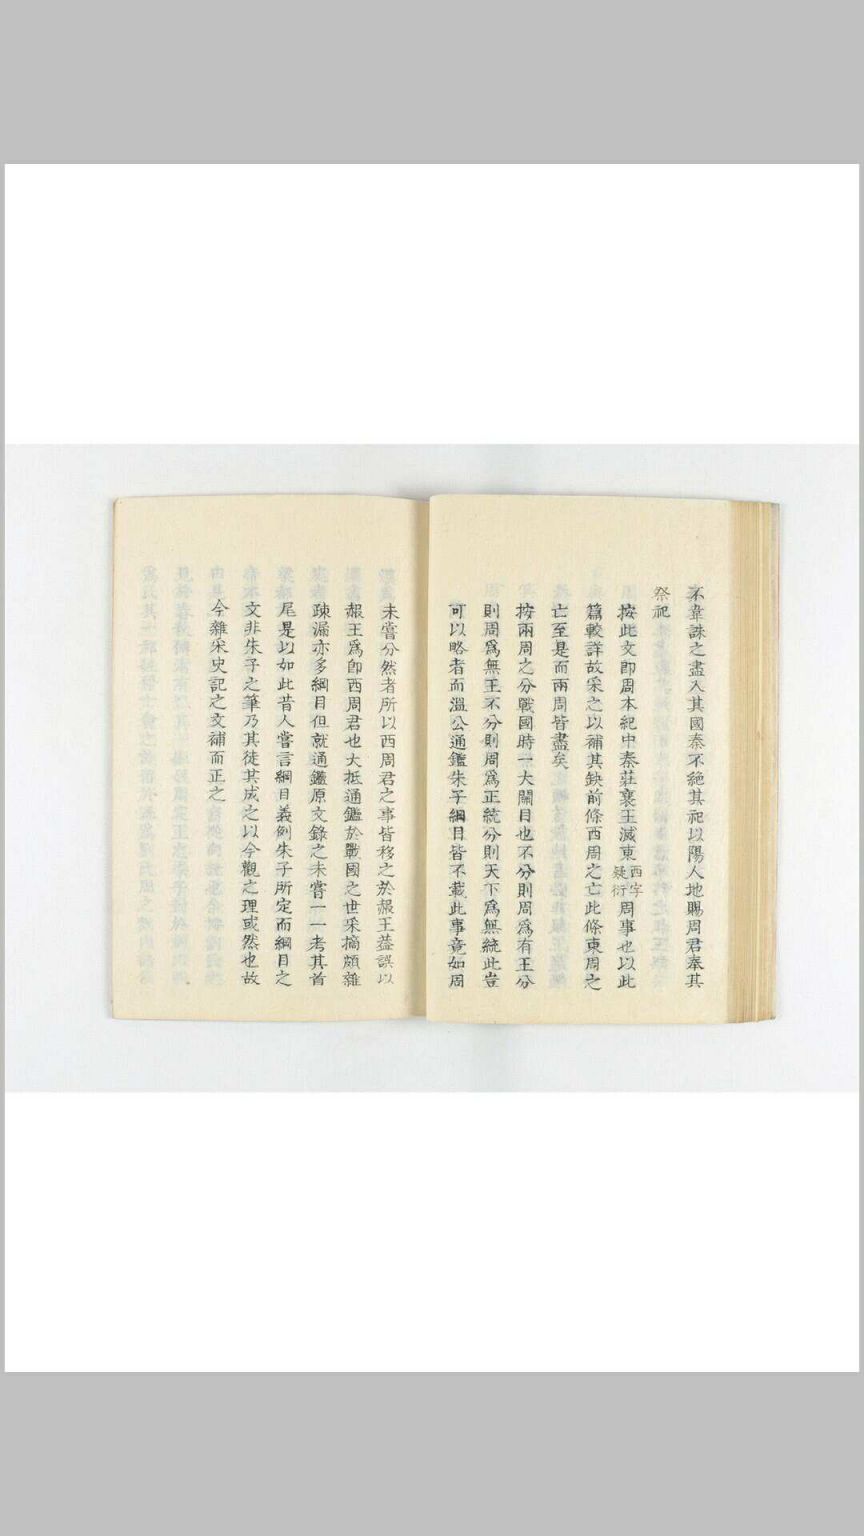 不韋誅之盡入其國秦不絕其祀以陽人地賜周君奉其
祭祀
按此文卽周本紀中秦莊襄王滅東西字疑衍周事也以此
篇較詳故采之以補其缺前條西周之亡此條東周之
亡至是而兩周皆盡矣
按兩周之分戰國時一大關目也不分則周爲有王分
則周爲無王不分則周爲正統分則天下爲無統此豈
可以略者而溫公通鑑朱子綱目皆不載此事竟如周
未嘗分然者所以西周君之事皆移之於赧王葢誤以
赧王爲卽西周君也大抵通鑑於戰國之世采摘頗雜
疎漏亦多綱目但就通鑑原文錄之未嘗一一考其首
尾是以如此昔人嘗言綱目義例朱子所定而綱目之
文非朱子之筆乃其徒其成之以今觀之理或然也故
今雜采史記之文補而正之